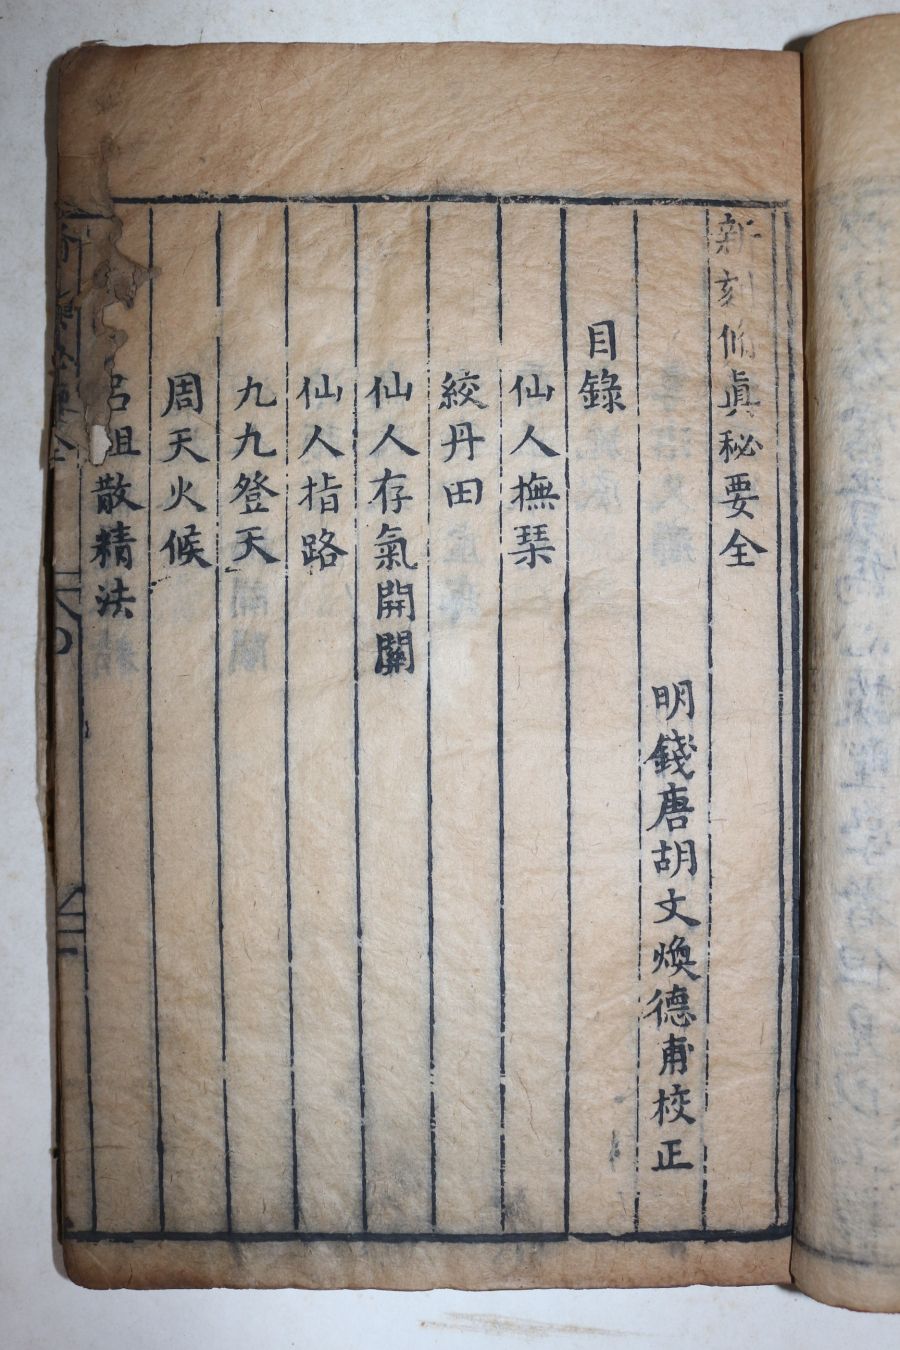 新刻脩眞秘要全
明錢唐胡文煥德甫校正
目錄
仙人撫琹
絞丹田
仙人存氣開關
仙人指路
九九登天
周天火候
呂祖散精法